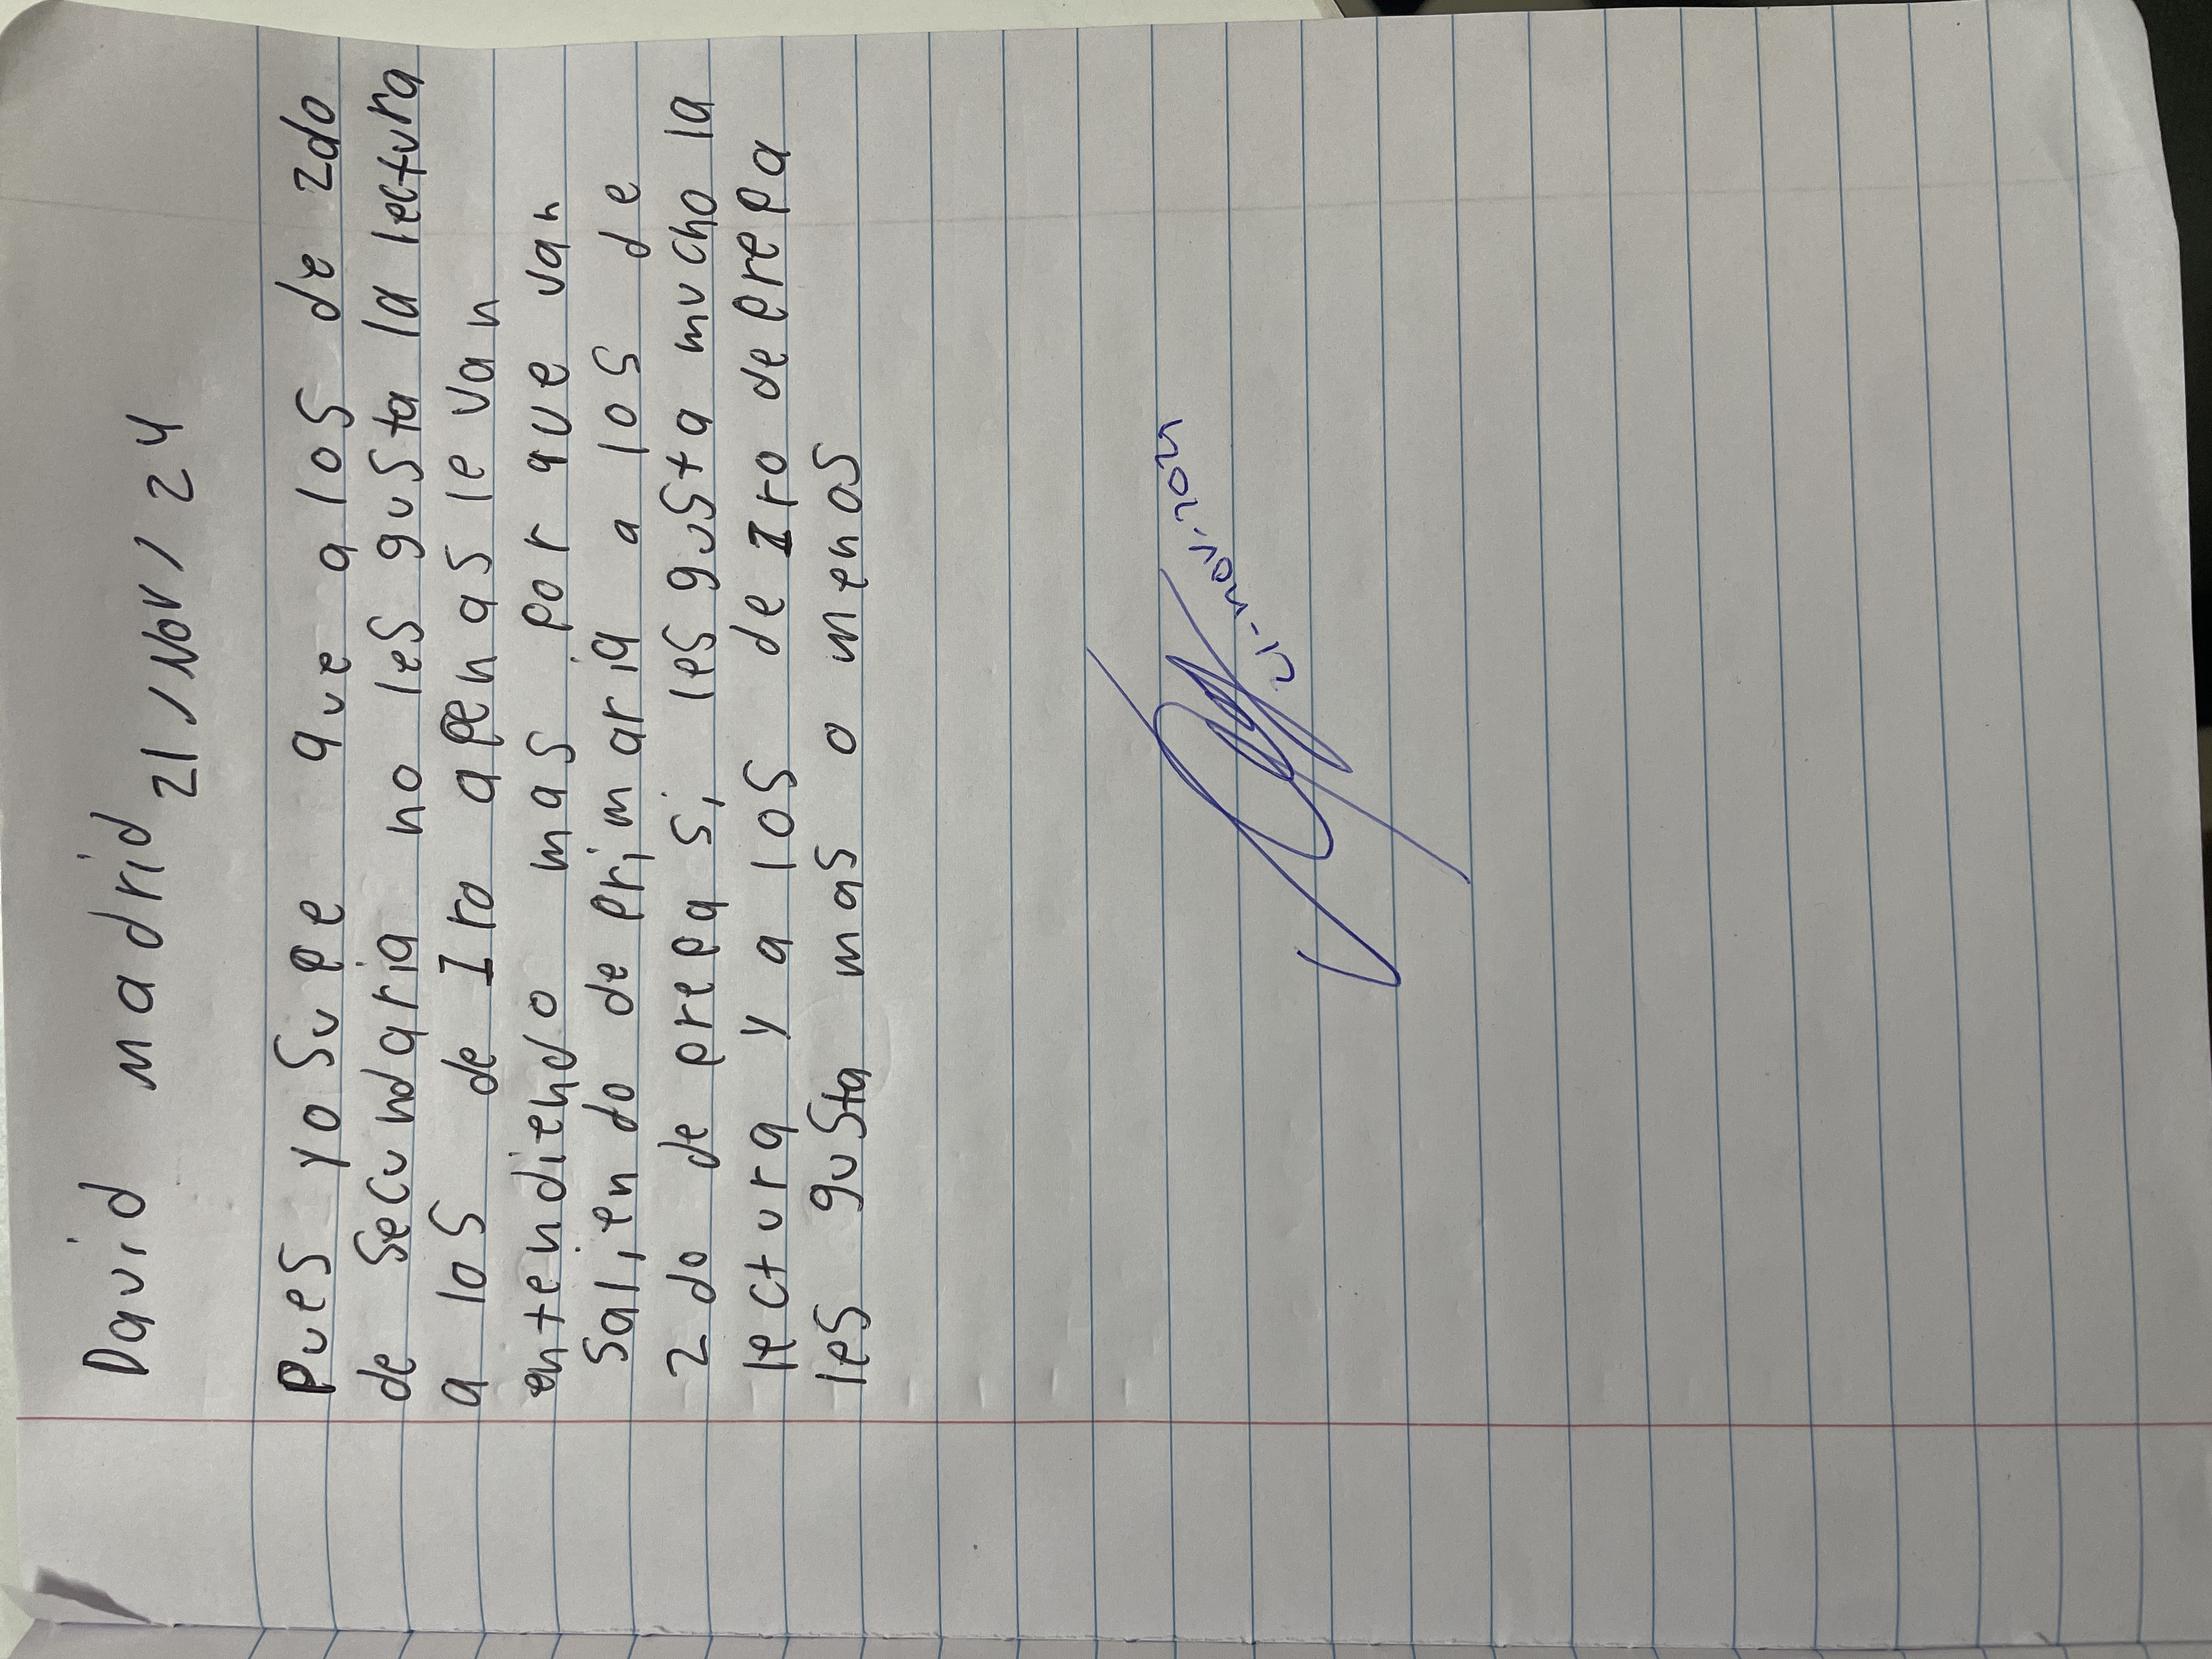 David madrid
21/Nov/24
Pues yo supe que a los de 2do
de secundaria no les gusta la lectura
a los de 1ro apenas le van
entendiendo mas por que van
saliendo de primaria a los de
2do de prepa si les gusta mucho la
lectura y a los de 1ro de prepa
les gusta mas o menos
21-nov-2024